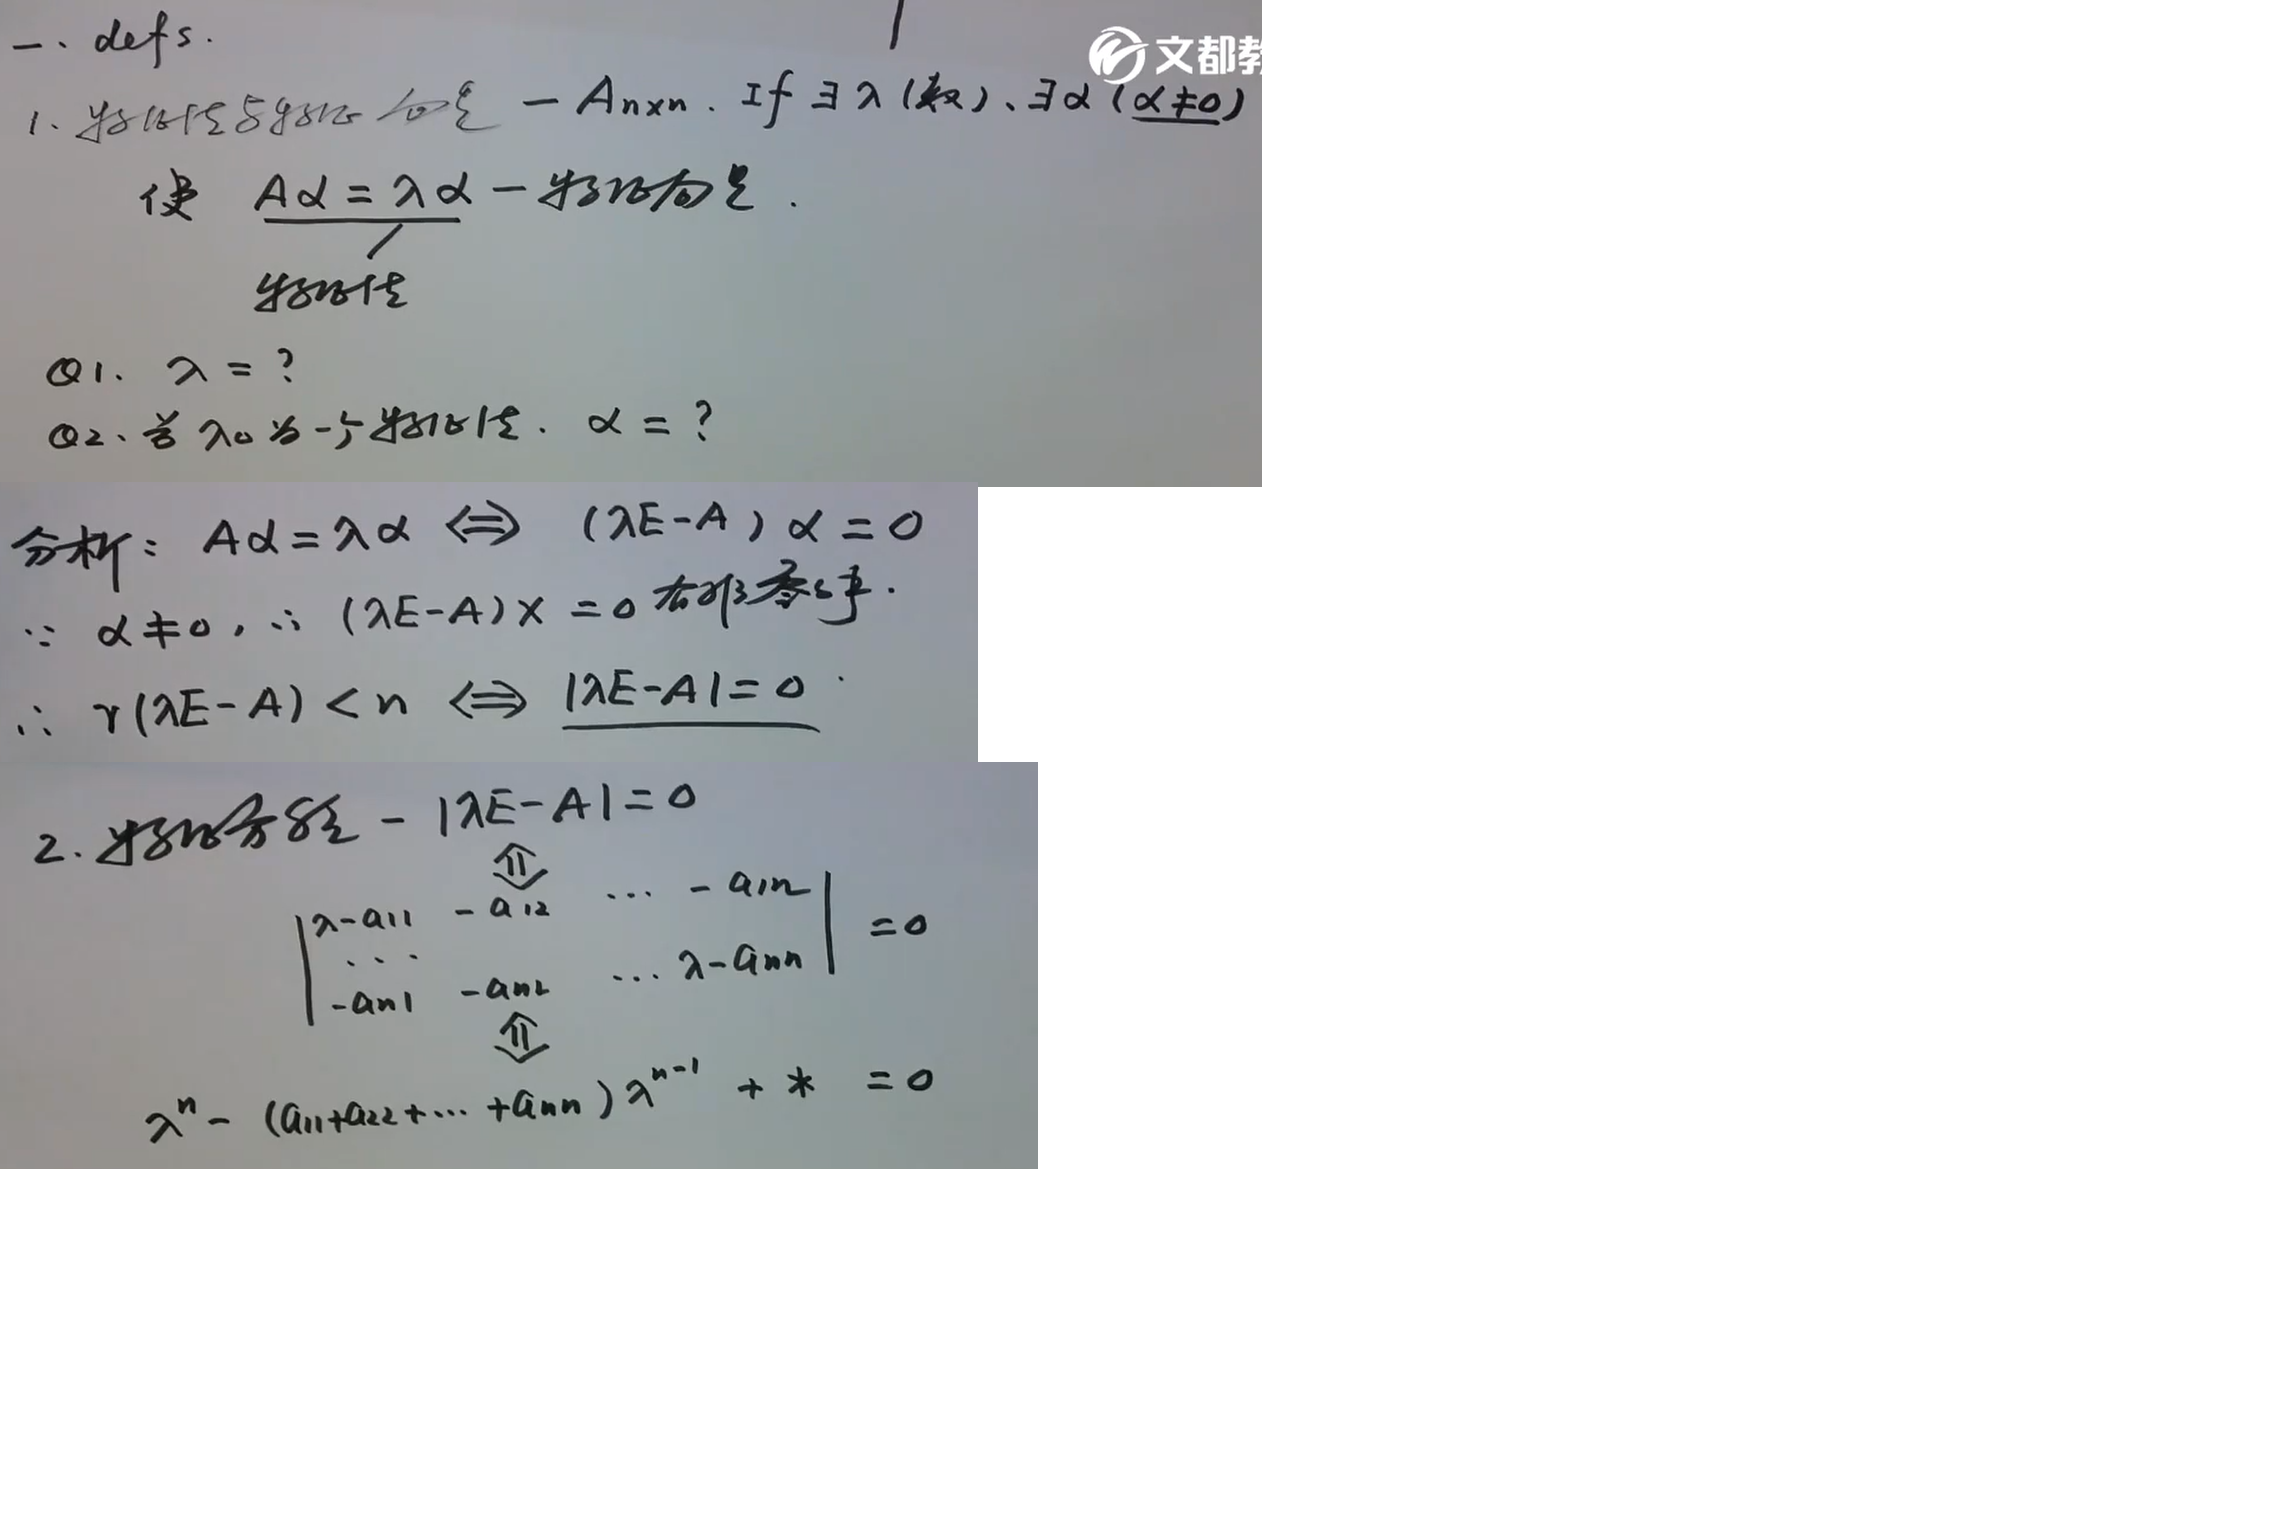 一、defs.
文都教
1. 特征值与特征向量 — Anxn. If ∃ λ(数)、∃ α (α≠0)
使 Aα = λα — 特征向量.
特征值
Q1. λ = ?
Q2、若 λ0 为一个特征值. α = ?
分析: Aα = λα ⇔ (λE-A) α = 0
∵ α ≠ 0, ∴ (λE-A)X = 0 有非零解.
∴ r(λE-A) < n ⇔ |λE-A| = 0
2. 特征方程 - |λE-A| = 0
⇕
|λ-a11 -a12 ... -a1n|
... = 0
|-an1 -an2 ... λ-ann|
⇕
λⁿ - (a11+a22+...+ann)λⁿ⁻¹ + * = 0